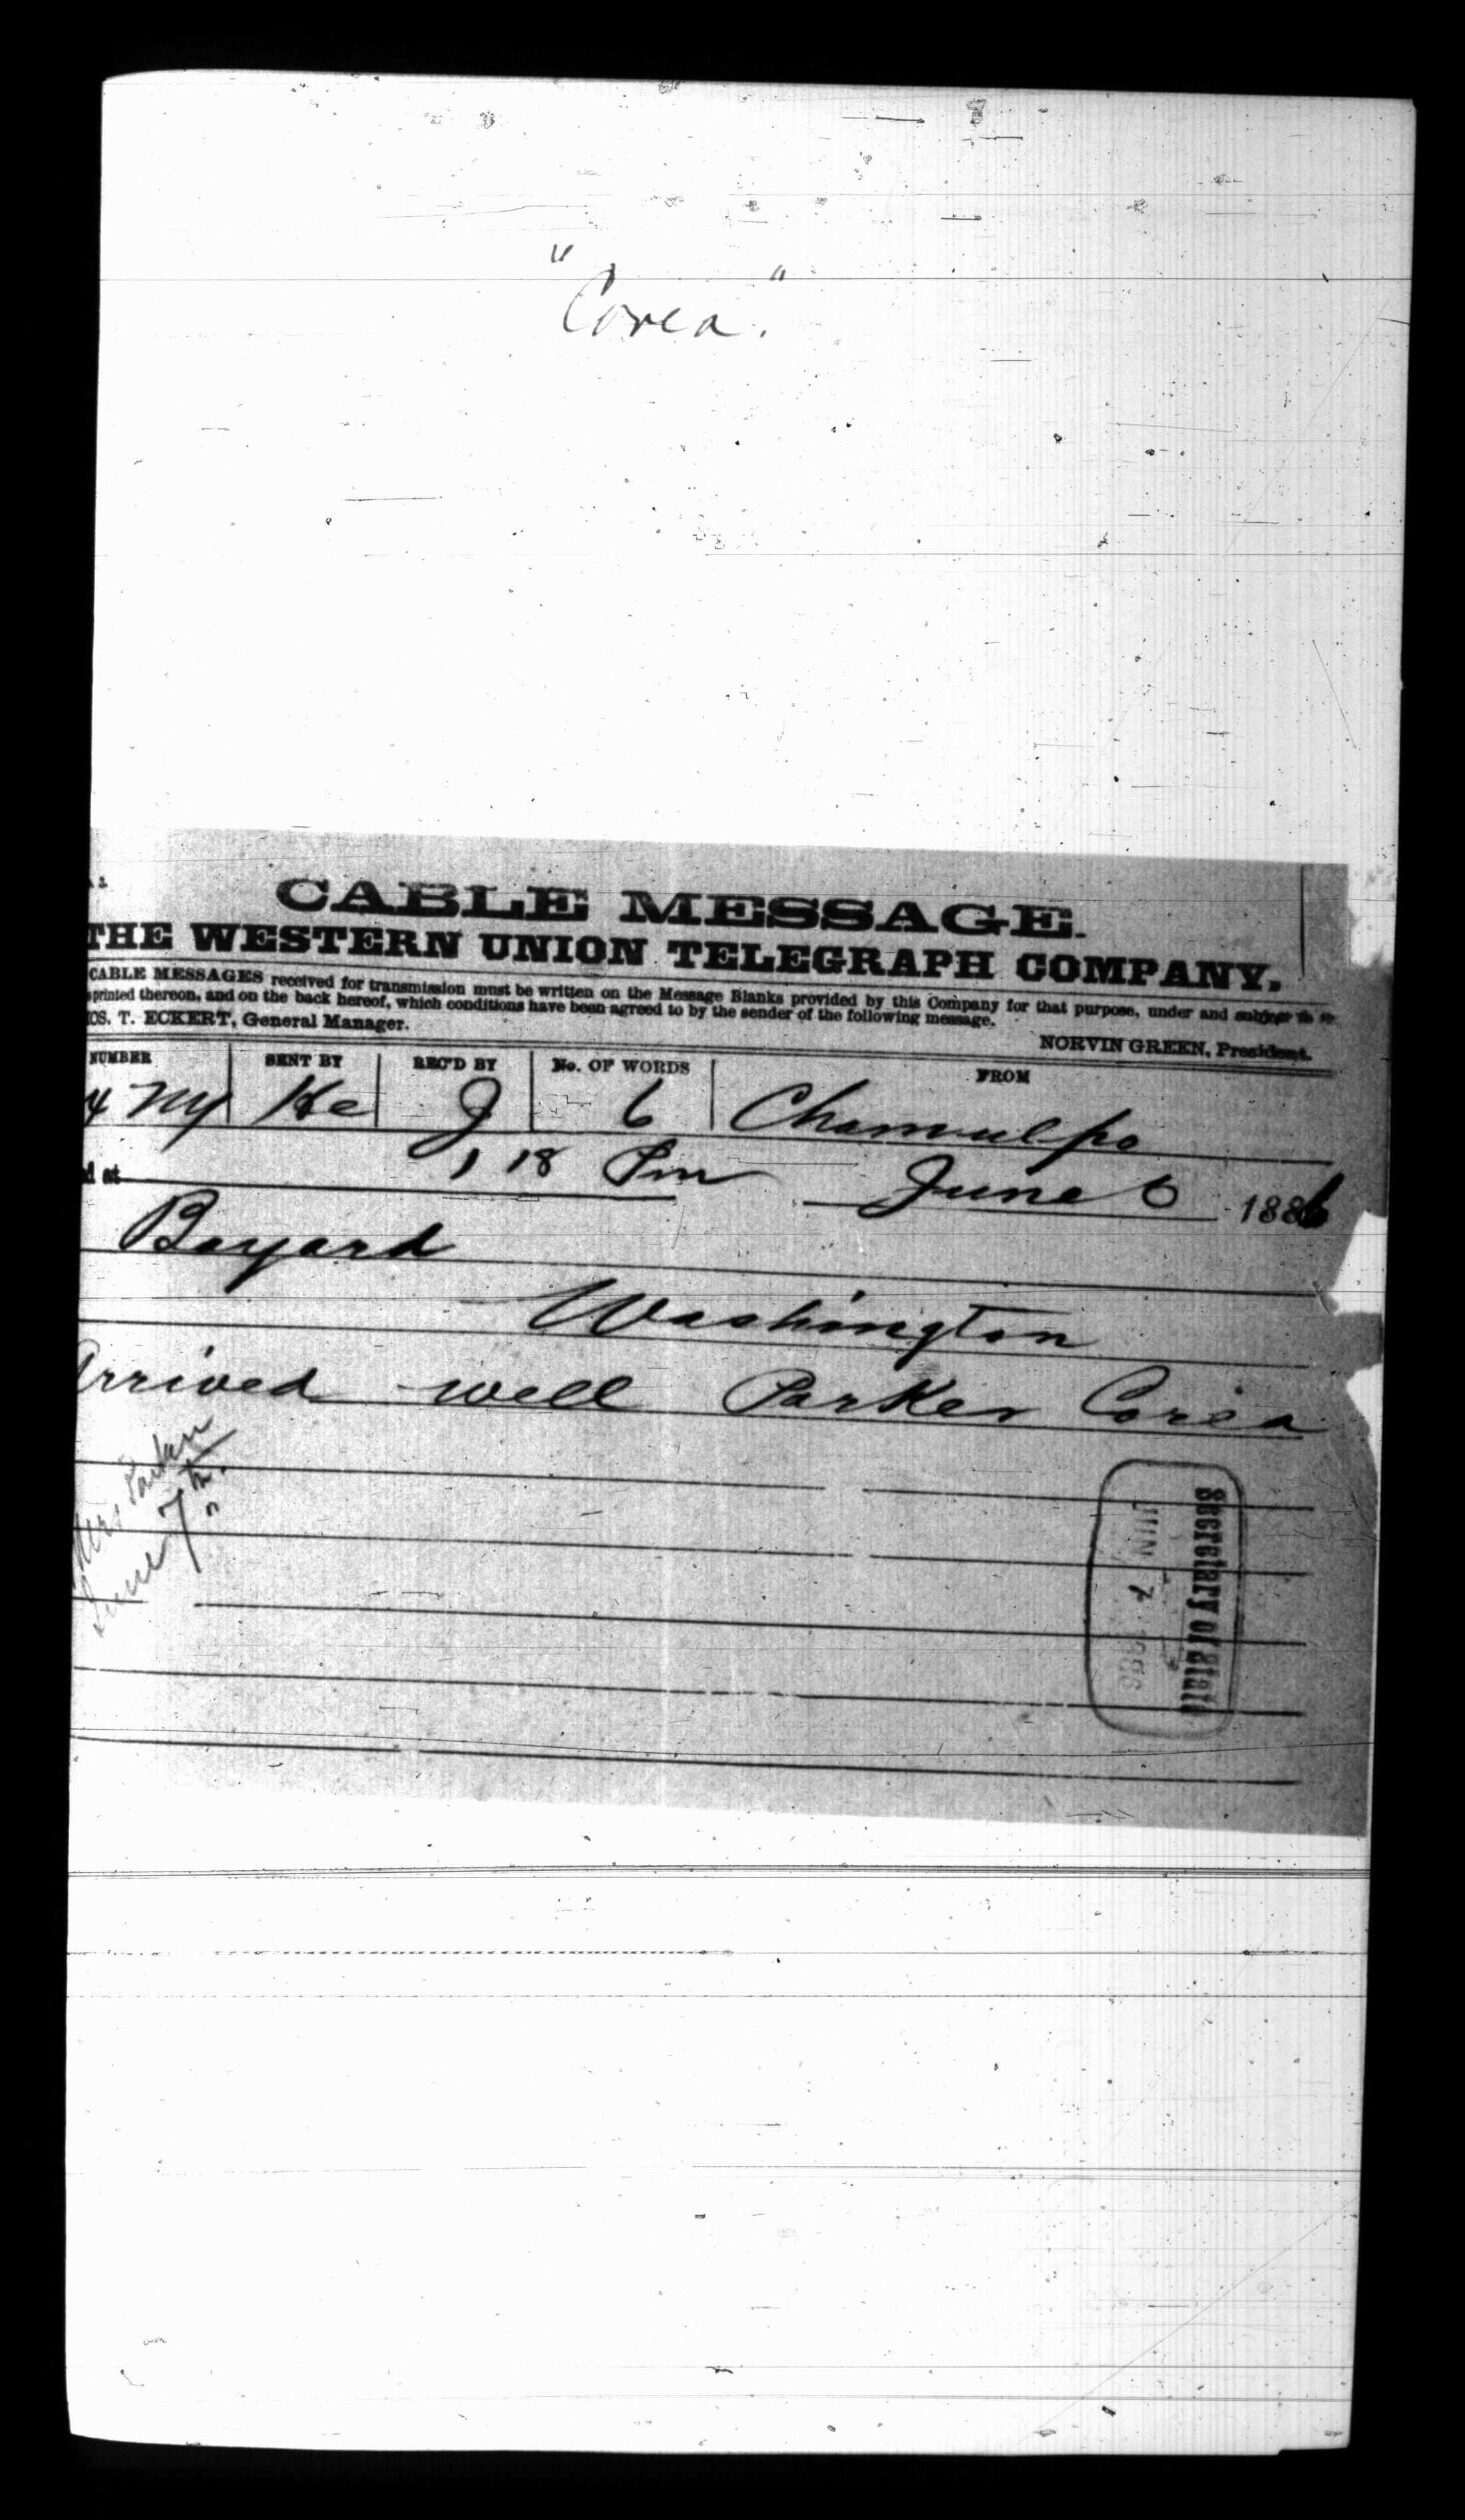 "Corea."
CABLE MESSAGE.
THE WESTERN UNION TELEGRAPH COMPANY,
CABLE MESSAGES received for transmission must be written on the Message Blanks provided by this Company for that purpose, under and subject to
printed thereon, and on the back hereof, which conditions have been agreed to by the sender of the following message.
OS. T. ECKERT, General Manager.
NORVIN GREEN, President.
NUMBER SENT BY REC'D BY No. OF WORDS FROM
4 Ny Ke J 6 Chemulpo
d at 1 18 Pm June 6 1886
Bayard
Washington
Arrived well Parker Corea
Mrs Parker
June 7th.
Secretary of State
JUN 7 1886